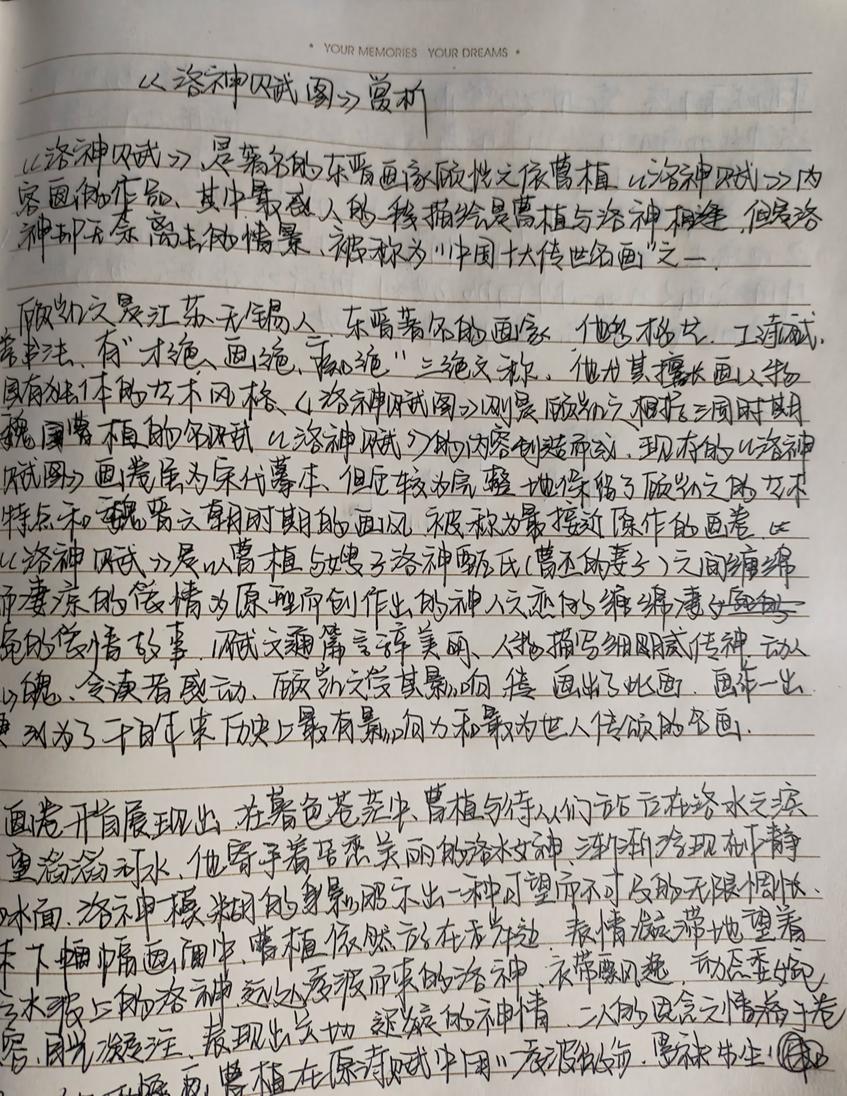 YOUR MEMORIES YOUR DREAMS
《洛神赋图》赏析
《洛神赋》是著名的东晋画家顾恺之依曹植《洛神赋》内
容画的作品、其中最感人的一段描绘是曹植与洛神相逢,但是洛
神却无奈离去的情景、被称为"中国十大传世名画"之一.
顾恺之是江苏无锡人、东晋著名的画家 他多才艺.工诗赋.
书法、有"才绝、画绝、 绝"三绝之称.他尤其擅长画人物
具有独体的艺术风格、《洛神赋图》则是顾恺之根据三国时期
魏国曹植的名赋《洛神赋》的内容创造而成.现存的《洛神
赋图》画卷虽为宋代摹本、但还较为完整地保留了顾恺之的艺术
特点和魏晋六朝时期的画风 被称为最接近原作的画卷.
《洛神赋》是以曹植与嫂子洛神甄氏(曹丕的妻子)之间缠绵
而凄凉的爱情为原型而创作出的神人之恋的缠绵凄
的爱情故事.赋文通篇言辞美丽、人物描写细腻传神.动人
魄、令读者感动、顾恺之受其影响 画出了此画.画作一出
列为了千百年来历史上最有影响力和最为世人传颂的名画.
画卷开首展现出 在暮色苍茫中、曹植与侍从们站立在洛水之滨
望滔滔河水、他寄予着 美丽的洛水女神、渐渐 现在平静
水面.洛神模糊的身影 示出一种可望而不可及的无限惆怅.
下幅 画面中、曹植依然 在 岸边 表情凝滞地望着
水波上的洛神 凌波而来的洛神、衣带飘风逸、动态委
目光凝注、表现出关切 的神情、二人的思念之情 于卷
曹植在原诗赋中用"凌波微步.罗袜生尘"